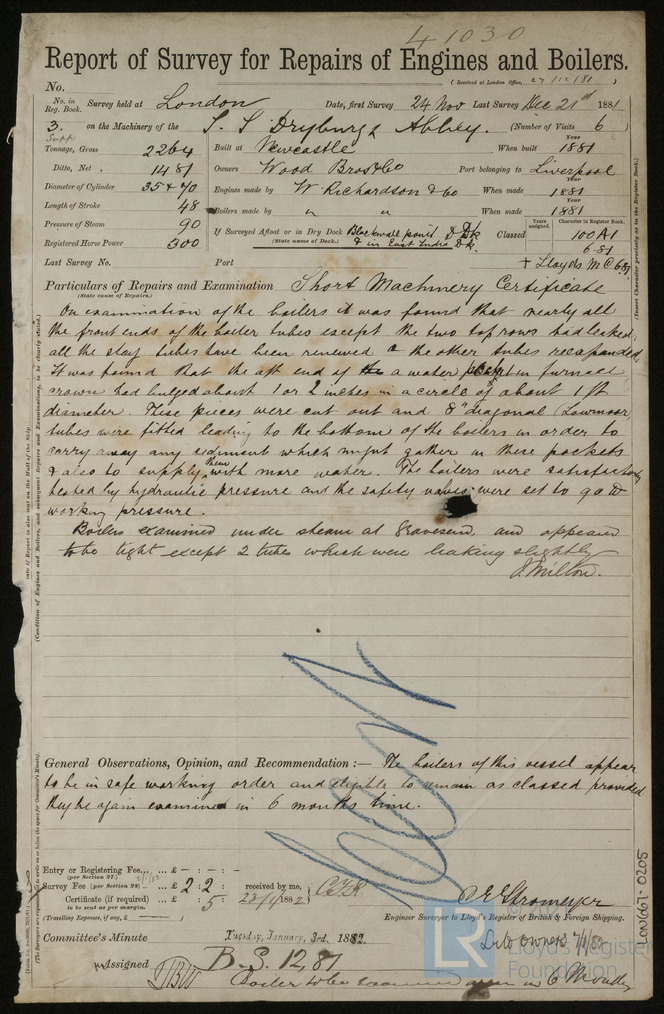 41030
Report of Survey for Repairs of Engines and Boilers.
(Received at London Office, 27/12/81)
No.
No. in Reg. Book. Survey held at London Date, first Survey 24 Nov Last Survey Dec 21st 1881
3. on the Machinery of the S.S. Dryburgh Abbey. (Number of Visits 6)
Supp
Tonnage, Gross 2264 Built at Newcastle When built Year 1881
Ditto, Net 1481 Owners Wood Bros & Co Port belonging to Liverpool
Diameter of Cylinder 35 & 70 Engines made by W Richardson & Co When made Year 1881
Length of Stroke 48 Boilers made by " " When made 1881
Pressure of Steam 90 If Surveyed Afloat or in Dry Dock Blackwall point D Dk Classed Years assigned. Character in Register Book. 100A1
Registered Horse Power 300 (State name of Dock.) & in East India Dk. 6.81
Last Survey No. Port + Lloyds M C 6.81
Particulars of Repairs and Examination Short Machinery Certificate
(State cause of Repairs.)
On examination of the boilers it was found that nearly all
the front ends of the boiler tubes except the two top rows had leaked,
all the stay tubes have been renewed & the other tubes reexpanded.
It was found that the aft end of a water in furnace
crown had bulged about 1 or 2 inches in a circle of about 1 ft
diameter. These pieces were cut out and 8" diagonal (Lowmoor)
tubes were fitted leading to the bottom of the boilers in order to
carry away any sediment which might gather in these pockets
& also to supply them with more water. The boilers were satisfactorily
tested by hydraulic pressure and the safety valves were set to 90 lb
working pressure.
Boilers examined under steam at Gravesend, and appeared
to be tight except 2 tubes which were leaking slightly
J Milton.
General Observations, Opinion, and Recommendation:— The boilers of this vessel appear
to be in safe working order and eligible to remain as classed provided
they be again examined in 6 months time.
Entry or Registering Fee... ... £ - : - : -
(per Section 27.)
Survey Fee (per Section 28) ... £ 2 : 2 : received by me,
Certificate (if required) ... £ : 5 :
to be sent as per margin.
(Travelling Expenses, if any, £ )
C E Stromeyer
Engineer Surveyor to Lloyd's Register of British & Foreign Shipping.
Committee's Minute Tuesday, January, 3rd. 1882.
Assigned B.S. 12,81
Boiler to be examined again in 6 Months
LR
Lloyd's Register
Foundation
LON667-0205